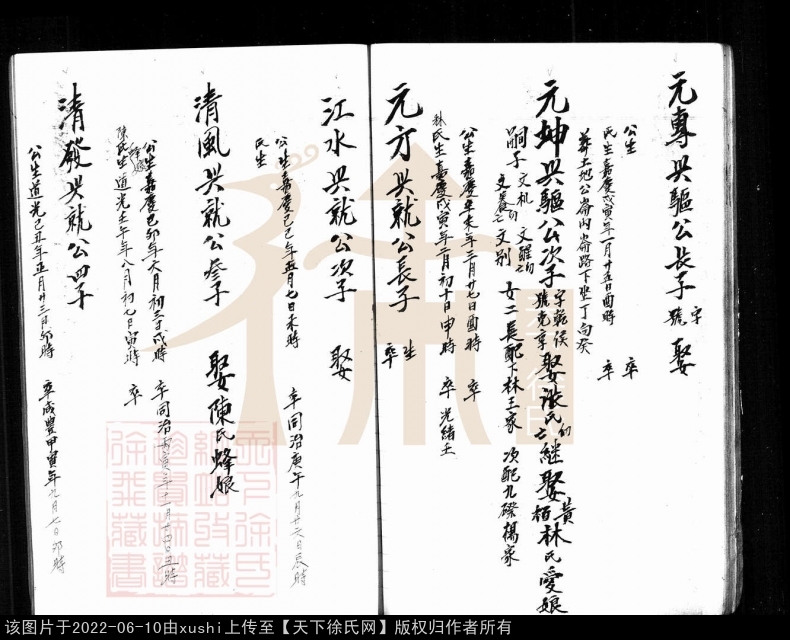 元專公驅公長子 字 號 娶
公生 卒
氏生嘉慶戊寅年一月廿五日酉時 卒
葬土地公崙內崙路下坐丁向癸
元坤公驅公次子 娶 氏 繼娶 林氏愛娘
嗣子 文机 文 文 文别 女二長配下林王家 次配九 楊家
公生嘉慶辛未年三月廿七日酉時 卒
林氏生嘉慶戊寅年二月初十日申時 卒光緒壬
元方公就公長子 生 卒
江水公就公次子 娶
公生嘉慶己巳年五月七日未時 卒同治庚午九月廿六日辰時
氏生
清風公就公叁子 娶陳氏蜂娘
公生嘉慶己卯年六月初三日戌時 卒同治丙寅年十一月廿四日丑時
陳氏生道光壬午年八月初七日寅時 卒
清發公就公四子
公生道光己丑年正月廿三日卯時 卒咸豐甲寅年九月七日卯時
天下徐氏
徐典藏書
该图片于2022-06-10由xushi上传至【天下徐氏网】版权归作者所有